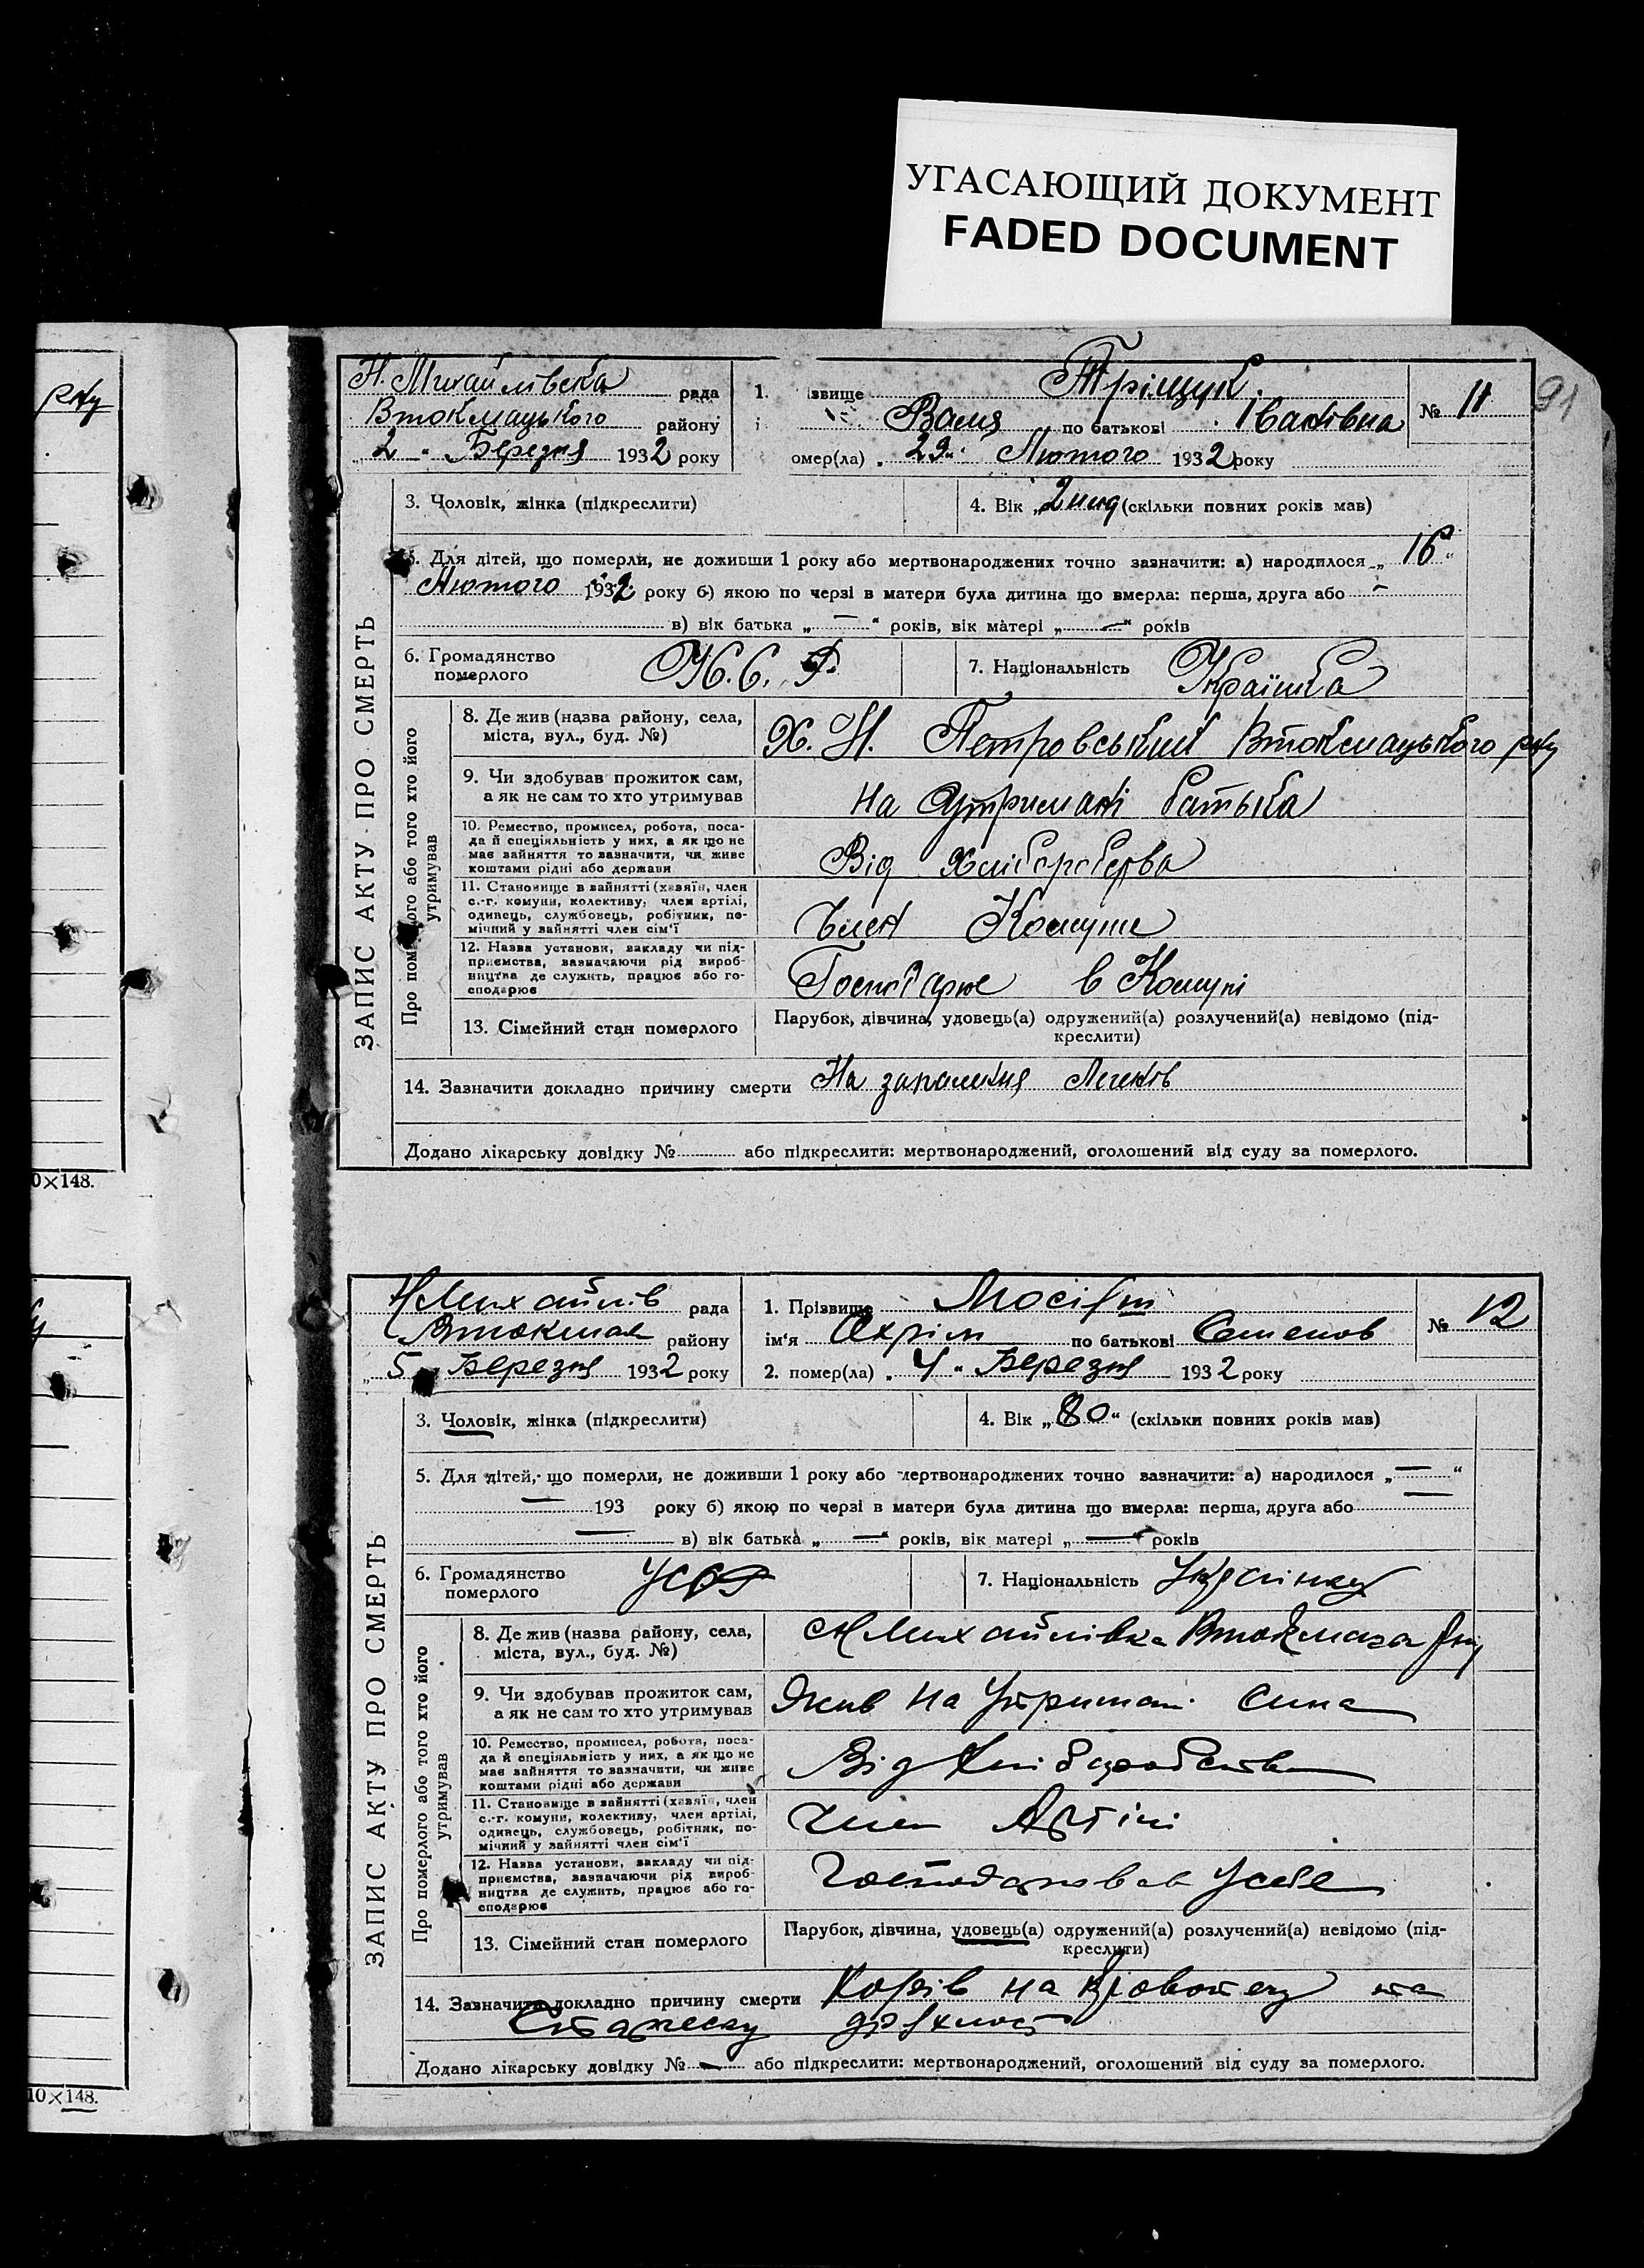 УГАСАЮЩИЙ ДОКУМЕНТ
FADED DOCUMENT
91
рну
0×148.
10×148.
ЗАПИС АКТУ ПРО СМЕРТЬ
Н. Михайлівська рада
Втокмацького району
„ 2 " Березня 1932 року
1. звище Тріщук
Валя по батькові Іванівна
№ 11
омер(ла) „ 29 " Лютого 1932 року
3. Чоловік, жінка (підкреслити)
4. Вік „ 2 нид (скільки повних років мав)
5. Для дітей, що померли, не доживши 1 року або мертвонароджених точно зазначити: а) народилося „ 16 "
Лютого 1932 року б) якою по черзі в матери була дитина що вмерла: перша, друга або —
в) вік батька „ — " років, вік матері „ — " років
6. Громадянство
померлого
7. Національність Українка
Про померлого або того хто його
утримував
8. Де жив (назва району, села,
міста, вул., буд. №)
Х. Н. Петровський Втокмацького рну
9. Чи здобував прожиток сам,
а як не сам то хто утримував
На Утримані батька
10. Ремество, промисел, робота, поса-
да й спеціяльність у них, а як що не
має зайняття то зазначити, чи живе
коштами рідні або держави
Від хліборобства
11. Становище в зайнятті (хазяїн, член
с.-г. комуни, колективу, член артілі,
одинець, службовець, робітник, по-
мічний у зайнятті член сім'ї
Член Комуни
12. Назва установи, закладу чи під-
приємства, зазначаючи рід вироб-
ництва де служить, працює або го-
сподарює
Господарює в Комуні
13. Сімейний стан померлого
Парубок, дівчина, удовець(а) одружений(а) розлучений(а) невідомо (під-
креслити)
14. Зазначити докладно причину смерти На запалення Легенів
Додано лікарську довідку № або підкреслити: мертвонароджений, оголошений від суду за померлого.
ЗАПИС АКТУ ПРО СМЕРТЬ
НМихайлів рада
Втокмак району
„ 5 " Березня 1932 року
1. Прізвище
ім'я Охрім по батькові Семенов
№ 12
2. помер(ла) „ 4 " Березня 1932 року
3. Чоловік, жінка (підкреслити)
4. Вік „ 80 " (скільки повних років мав)
5. Для дітей, що померли, не доживши 1 року або мертвонароджених точно зазначити: а) народилося „ — "
— 193 року б) якою по черзі в матери була дитина що вмерла: перша, друга або —
— в) вік батька „ — " років, вік матері „ — " років
6. Громадянство
померлого
УСРР
7. Національність Українец
Про померлого або того хто його
утримував
8. Де жив (назва району, села,
міста, вул., буд. №)
с НМихайлівка Втокмака рну
9. Чи здобував прожиток сам,
а як не сам то хто утримував
Я жив на Утримані Сина
10. Ремество, промисел, робота, поса-
да й спеціяльність у них, а як що не
має зайняття то зазначити, чи живе
коштами рідні або держави
Від Хліборобства
11. Становище в зайнятті (хазяїн, член
с.-г. комуни, колективу, член артілі,
одинець, службовець, робітник, по-
мічний у зайнятті член сім'ї
Член Артілі
12. Назва установи, закладу чи під-
приємства, зазначаючи рід вироб-
ництва де служить, працює або го-
сподарює
Господарював Усебе
13. Сімейний стан померлого
Парубок, дівчина, удовець(а) одружений(а) розлучений(а) невідомо (під-
креслити)
14. Зазначити докладно причину смерти на та
Додано лікарську довідку № — або підкреслити: мертвонароджений, оголошений від суду за померлого.